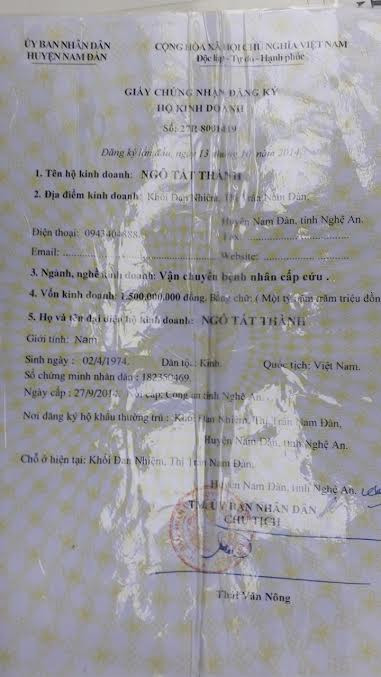 ỦY BAN NHÂN DÂN
HUYỆN NAM ĐÀN
CỘNG HÒA XÃ HỘI CHỦ NGHĨA VIỆT NAM
Độc lập - Tự do - Hạnh phúc
GIẤY CHỨNG NHẬN ĐĂNG KÝ
HỘ KINH DOANH
Số: 27R 8001419
Đăng ký lần đầu, ngày 13 tháng 10 năm 2014
1. Tên hộ kinh doanh: NGÔ TẤT THÀNH
2. Địa điểm kinh doanh: Khối Đan Nhiệm, Thị Trấn Nam Đàn,
Huyện Nam Đàn, tỉnh Nghệ An.
Điện thoại: Fax:
Email: Website:
3. Ngành, nghề kinh doanh: Vận chuyển bệnh nhân cấp cứu .
4. Vốn kinh doanh: 1.500.000.000 đồng. Bằng chữ: ( Một tỷ năm trăm triệu đồn
5. Họ và tên đại diện hộ kinh doanh: NGÔ TẤT THÀNH
Giới tính: Nam
Sinh ngày : 02/4/1974. Dân tộc: Kinh. Quốc tịch: Việt Nam.
Số chứng minh nhân dân : 182350469.
Ngày cấp : 27/9/2014. Nơi cấp: Công an tỉnh Nghệ An.
Nơi đăng ký hộ khẩu thường trú : Khối Đan Nhiệm, Thị Trấn Nam Đàn,
Huyện Nam Đàn, tỉnh Nghệ An.
Chỗ ở hiện tại: Khối Đan Nhiệm, Thị Trấn Nam Đàn,
Huyện Nam Đàn, tỉnh Nghệ An.
TM. ỦY BAN NHÂN DÂN
CHỦ TỊCH
Thái Văn Nông